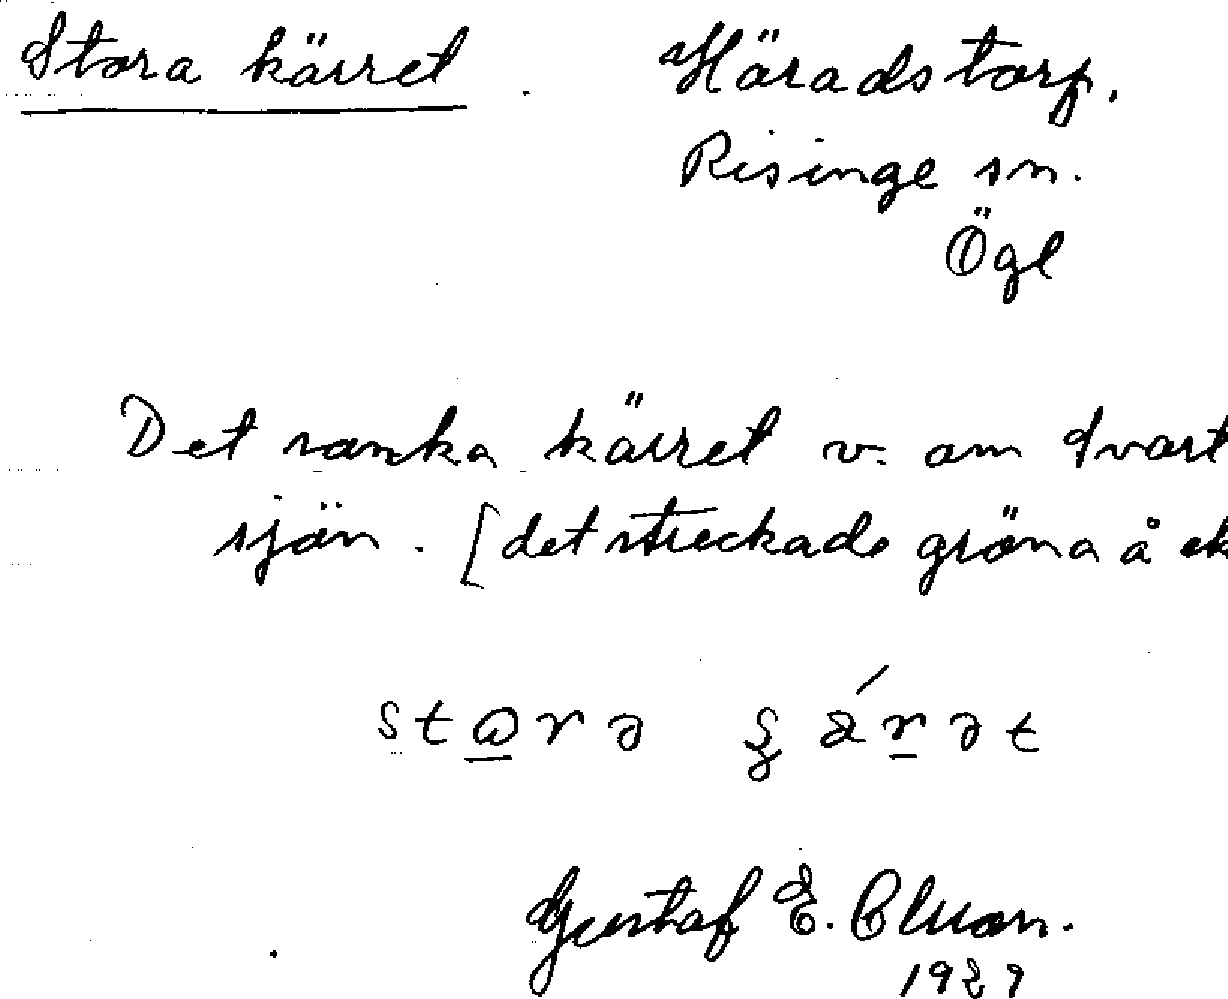 Stora kärret. Häradstorp.
Risinge sn.
Ögl
Det sanka kärret v. om Svart
sjön. [det streckade gröna å ek
Gustaf E.
1927